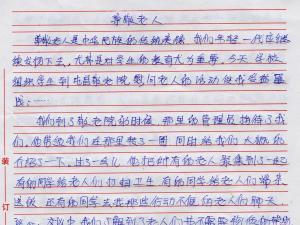 尊敬老人
尊敬老人是中华民族的传统美德，我们年轻一代应继
续发扬下去，尤其是对学生的教育尤为重要，今天学校
组织学生到 敬老院慰问老人的活动使我受益
我们到了敬老院的时候，那里的管理员接待了我
们，他带领我们在那里转了一圈 同时给我们大概的
介绍了一下，过了一会儿 他把所有的老人聚集到了一起
有的同学给老人们打扫卫生 有的同学给老人们端茶
送饭 还有的同学去 那些行动不便的老人们聊天
我们了解到了老人们
装
订